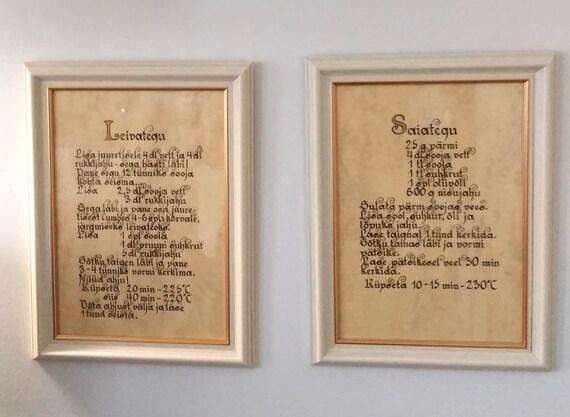 Leivategu
Lisa juuretisele 4 dl vett ja 4 dl
rukkijahu - sega hästi läbi!
Pane segu 12 tunniks sooja
kohta seisma.
Lisa 2,5 dl sooja vett
3 dl rukkijahu
Sega läbi ja pane osa juure-
tisest (umbes 4-6 spl) kõrvale,
järgmiseks leivateoks.
Lisa 1 spl soola
1 dl pruuni suhkrut
5 dl rukkijahu
Sõtku taigen läbi ja pane
3-4 tunniks vormi kerkima.
Nüüd ahju!
Küpseta 20 min - 225°C
siis 40 min - 220°C
Võta ahjust välja ja lase
1 tund seista.
Saiategu
25 g pärmi
4 dl sooja vett
1 tl soola
1 tl suhkrut
1 spl oliivõli
600 g nisujahu
Sulata pärm soojas vees.
Lisa sool, suhkur, õli ja
lõpuks jahu.
Lase taignal 1 tund kerkida.
Sõtku tainas läbi ja vormi
pätsike.
Lase pätsikesel veel 30 min
kerkida.
Küpseta 10-15 min - 230°C